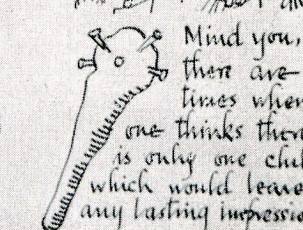 Mind you,
there are
times when
one thinks there
is only one club
which would leave
any lasting impressio